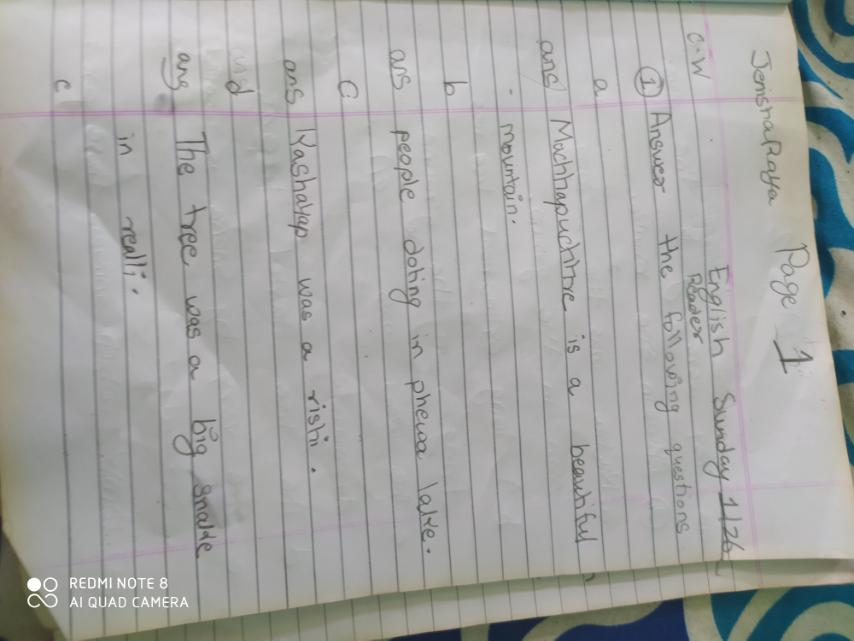 Page 1
Jenisha Raya
English Sunday 1/26
Reader
C.W
① Answer the following questions
a
ans Machhapuchhre is a beautiful
mountain.
b
ans people doting in phewa lake.
C
ans Kashayap was a rishi.
d
ans The tree was a big snake
in realli.
c
REDMI NOTE 8
AI QUAD CAMERA